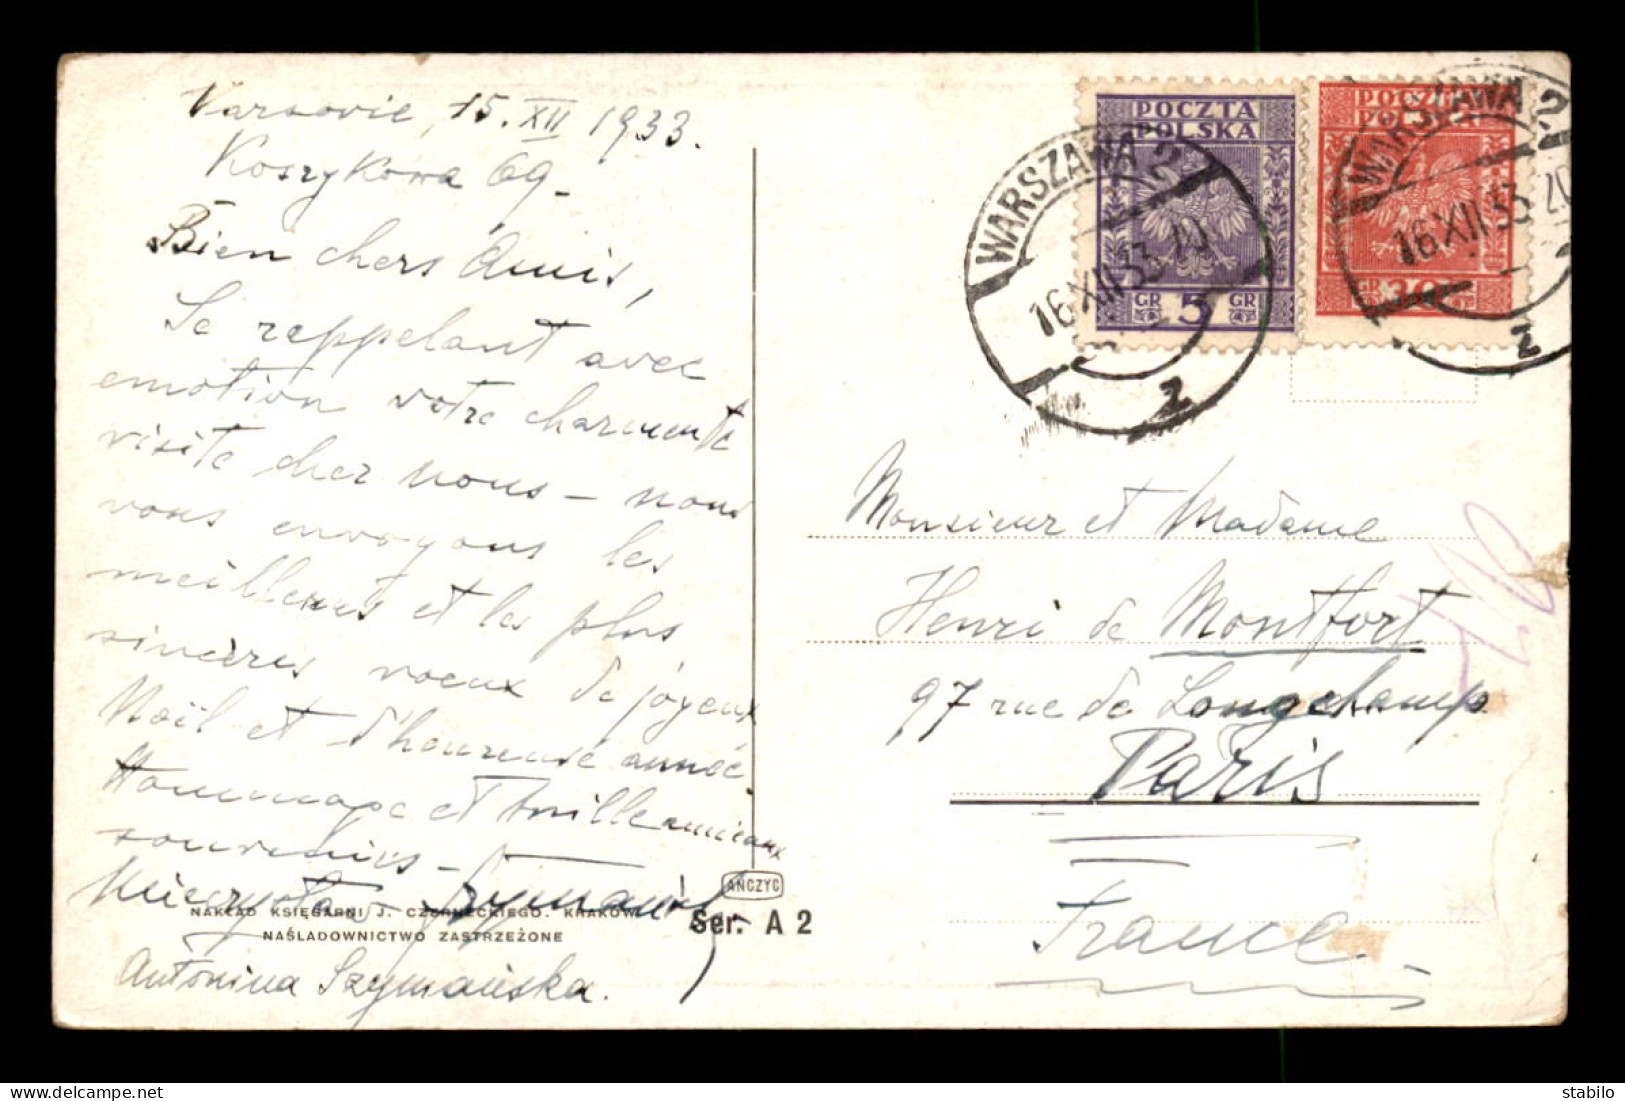 Varsovie, 15. XII 1933.
Koszykowa 69 -
Bien chers Amis,
Se rappelant avec
emotion votre charmante
visite chez nous - nous
vous envoyons les
meilleurs et les plus
sincères voeux de joyeux
Noël et d'heureuse année
Hommage et mille amicaux
souvenirs -
Mieczysław Szymański
NAKŁAD KSIĘGARNI J. CZERNECKIEGO. KRAKÓW
NAŚLADOWNICTWO ZASTRZEŻONE
Antonina Szymańska.
AŃCZYC
Ser. A 2
POCZTA
POLSKA
GR 5 GR
WARSZAWA 2
16 XII 33 20
z
POCZTA
POLSKA
GR 30
WARSZAWA 2
16 XII 33 20
z
Monsieur et Madame
Henri de Montfort
97 rue de Longchamp
Paris
France
stabilo